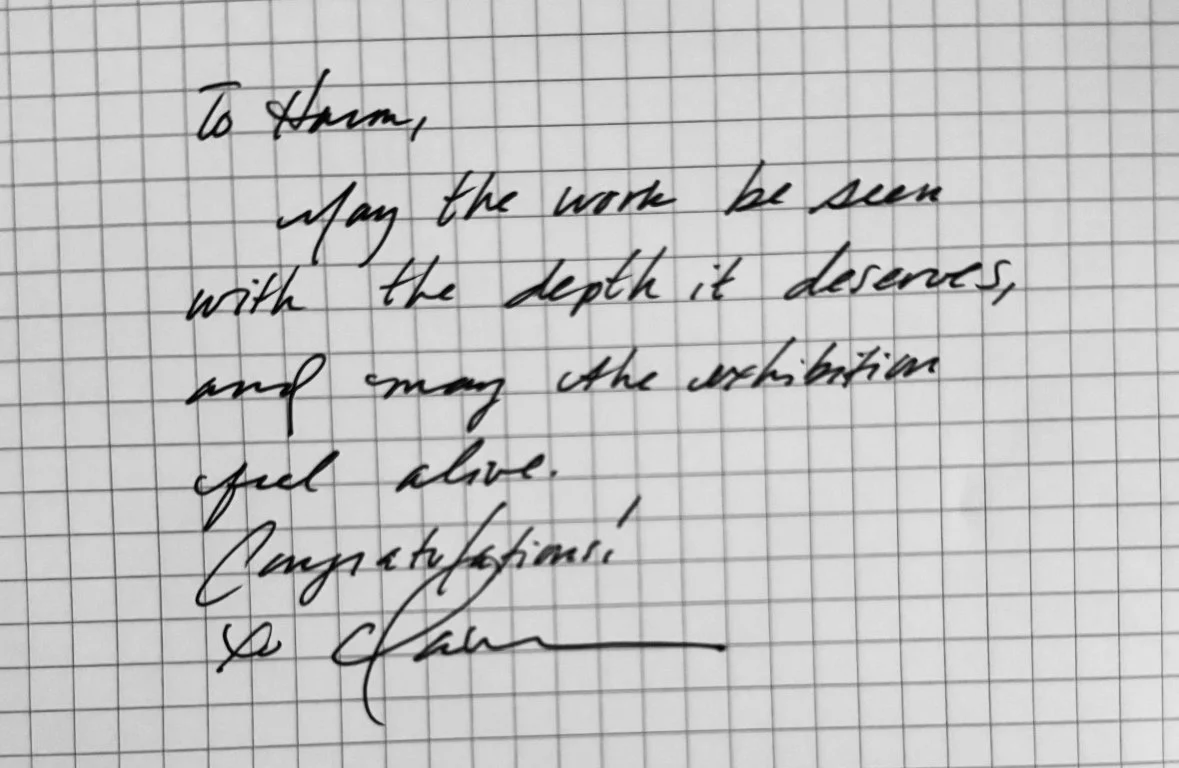 To Harm,
May the work be seen
with the depth it deserves,
and may the exhibition
feel alive.
Congratulations!
xo